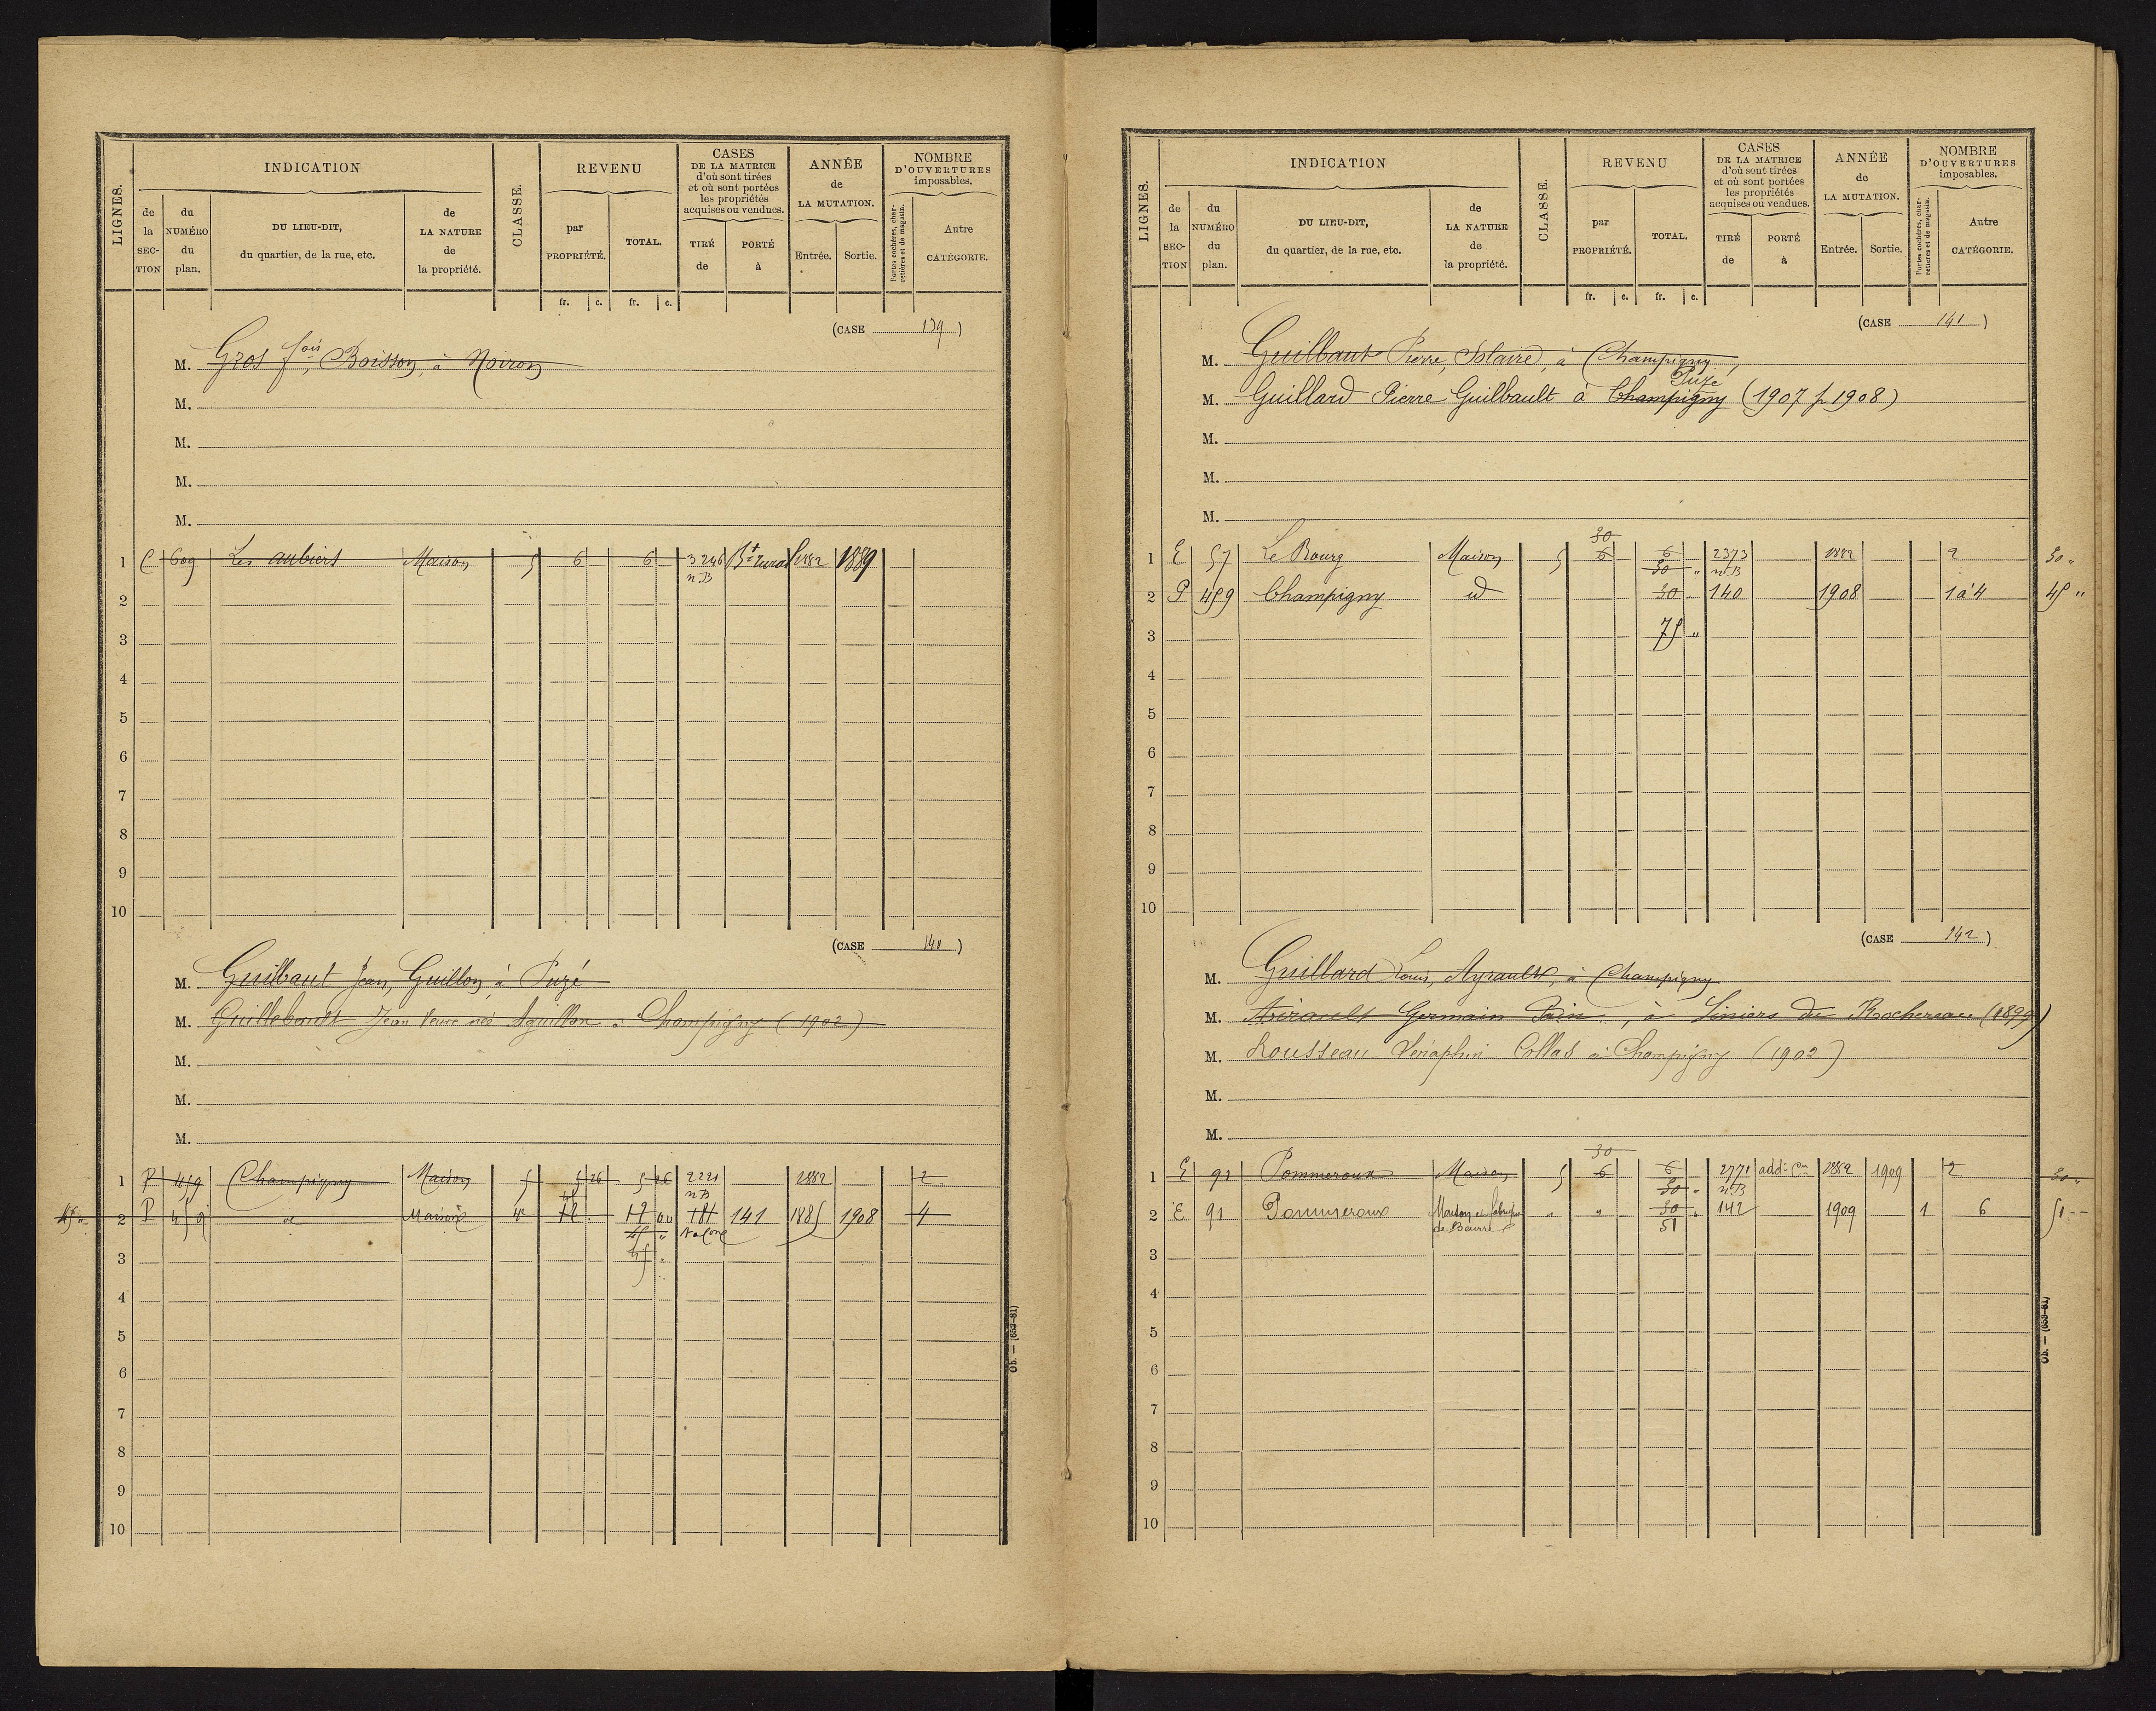 LIGNES. INDICATION CLASSE. REVENU CASES DE LA MATRICE d'où sont tirées et où sont portées les propriétés acquises ou vendues. ANNÉE de LA MUTATION. NOMBRE D'OUVERTURES imposables.
de la SECTION du NUMÉRO du plan. DU LIEU-DIT, du quartier, de la rue, etc. de LA NATURE de la propriété. par PROPRIÉTÉ. TOTAL. TIRÉ de PORTÉ à Entrée. Sortie. Portes cochères, charretières et de magasin. Autre CATÉGORIE.
fr. c. fr. c.
(CASE 139)
M. Gros fois, Boisson, à Noiron
M.
M.
M.
M.
1 C 609 Les aubiers Maison 5 6 6 3246 Bt rural 1882 1889
n.B
2
3
4
5
6
7
8
9
10
(CASE 140)
M. Guilbaut Jean, Guillon, à Puzé
M. Guillebault Jean Veuve née Aguillon à Champigny (1902)
M.
M.
M.
1 P 459 Champigny Maison 5 5 26 5 26 2221 1882 2
n B
45 "
2 P 459 d Maison 4 12 12 00 181 141 1885 1908 4
45 " N. Con
3 45 "
4
5
6
7
8
9
10
Ob. — (653-81)
LIGNES. INDICATION CLASSE. REVENU CASES DE LA MATRICE d'où sont tirées et où sont portées les propriétés acquises ou vendues. ANNÉE de LA MUTATION. NOMBRE D'OUVERTURES imposables.
de la SECTION du NUMÉRO du plan. DU LIEU-DIT, du quartier, de la rue, etc. de LA NATURE de la propriété. par PROPRIÉTÉ. TOTAL. TIRÉ de PORTÉ à Entrée. Sortie. Portes cochères, charretières et de magasin. Autre CATÉGORIE.
fr. c. fr. c.
(CASE 141)
M. Guilbaut Pierre, Solaire, à Champigny,
Puzé
M. Guillard Pierre Guilbault à Champigny (1907 p 1908)
M.
M.
M.
30
1 E 57 Le Bourg Maison 5 6 6 2373 1882 2 30 "
30 " n.B
2 P 459 Champigny id 30 140 1908 1 à 4 45 "
3 75 "
4
5
6
7
8
9
10
(CASE 142)
M. Guillard Louis, Ayrault, à Champigny
M. Airault Germain Pain, à Liniers du Rochereau (1899)
M. Rousseau Séraphin Collas à Champigny (1902)
M.
M.
30
1 E 91 Pommeroux Maison 5 6 6 2771 addon Con 1882 1909 2 30 "
30 " n.B
2 E 91 Pommeroux Maison et fabrique de Beurre " " 30 " 142 1909 1 6 51 --
51
3
4
5
6
7
8
9
10
Ob. — (653-81)